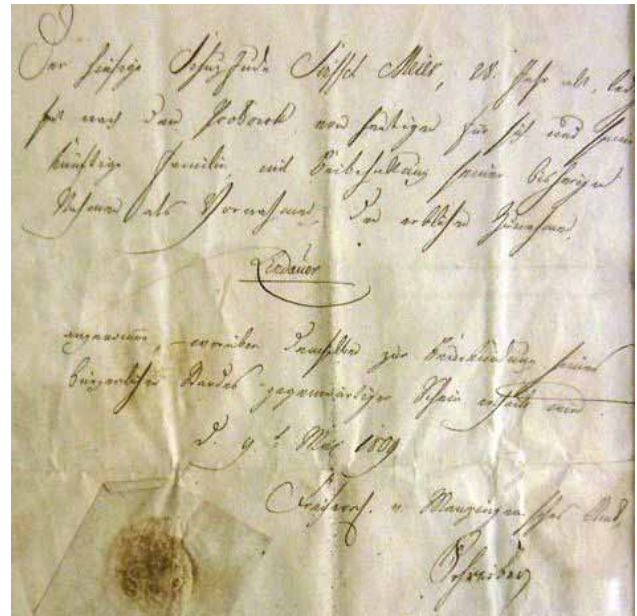 Der hiesige Schuz Jude Seissel Meier, 28. Jahr alt, led
hat nach dem Protocoll von heutigen für sich und seine
künftige Familie mit Beibehaltung seiner bisherigen
Nahmen als Vornahmen, den erblichen Zunahmen
Lindauer
angenommen, worüber demselben zur Beurkundung seines
bürgerlichen Standes gegenwärtiger Schein ertheilt wird
d. 9 t. May 1809
Freiherrl. v. Menzingen sches Amt.
Schreiber